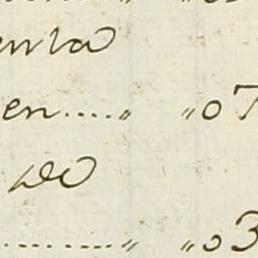 enla
en....〃 〃07
do
.........〃 〃03